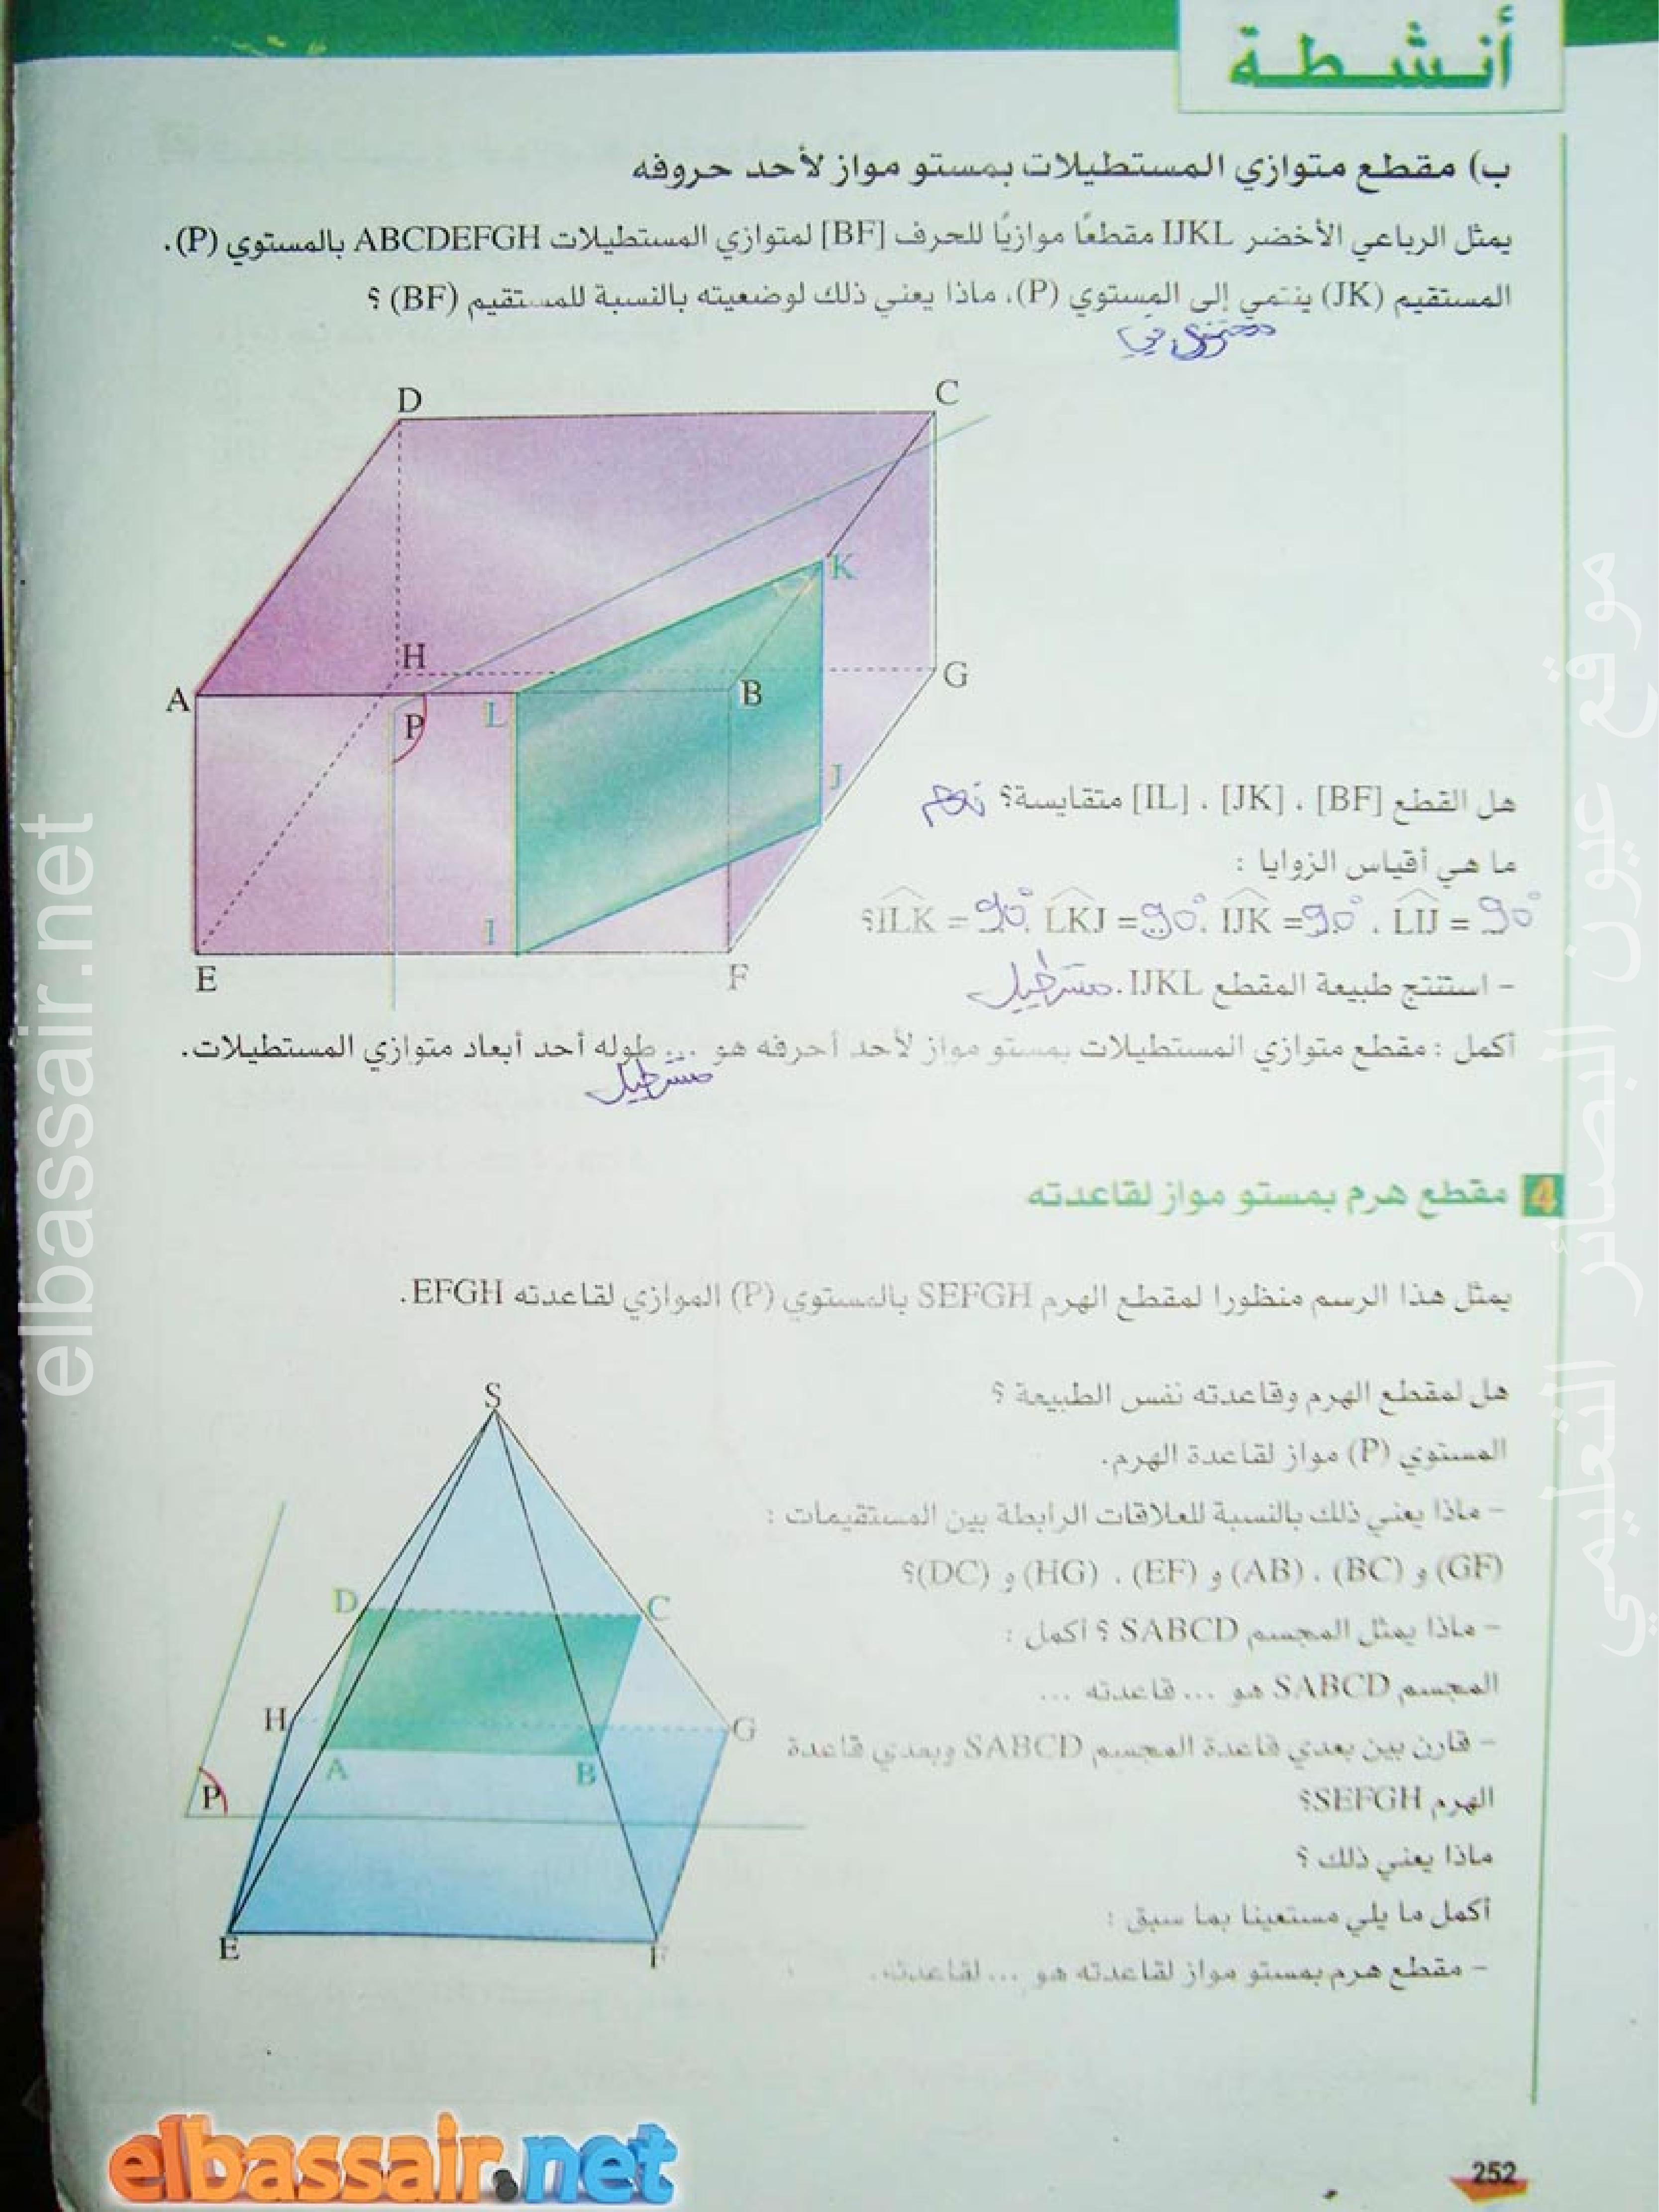 أنشطة
ب) مقطع متوازي المستطيلات بمستو مواز لأحد حروفه
يمثل الرباعي الأخضر IJKL مقطعًا موازيًا للحرف [BF] لمتوازي المستطيلات ABCDEFGH بالمستوي (P).
المستقيم (JK) ينتمي إلى المستوي (P)، ماذا يعني ذلك لوضعيته بالنسبة للمستقيم (BF) ؟
محتوى في
D
C
K
H
G
A
B
L
P
J
I
E
F
هل القطع [BF] ، [JK] ، [IL] متقايسة؟ نعم
ما هي أقياس الزوايا :
LIJ = 90° ، IJK = 90° ، LKJ = 90° ، ILK = 90° ؟
– استنتج طبيعة المقطع IJKL. مستطيل
أكمل : مقطع متوازي المستطيلات بمستو مواز لأحد أحرفه هو ... طوله أحد أبعاد متوازي المستطيلات.
مستطيل
4 مقطع هرم بمستو مواز لقاعدته
يمثل هذا الرسم منظورا لمقطع الهرم SEFGH بالمستوي (P) الموازي لقاعدته EFGH.
هل لمقطع الهرم وقاعدته نفس الطبيعة ؟
المستوي (P) مواز لقاعدة الهرم.
– ماذا يعني ذلك بالنسبة للعلاقات الرابطة بين المستقيمات :
(GF) و (BC) ، (AB) و (EF) ، (HG) و (DC)؟
– ماذا يمثل المجسم SABCD ؟ أكمل :
المجسم SABCD هو ... قاعدته ...
– قارن بين بعدي قاعدة المجسم SABCD وبعدي قاعدة
الهرم SEFGH؟
ماذا يعني ذلك ؟
أكمل ما يلي مستعينا بما سبق :
– مقطع هرم بمستو مواز لقاعدته هو ... لقاعدته.
S
D
C
H
G
A
B
P
E
F
252
elbassair.net
elbassair.net
موقع عيون البصائر التعليمي